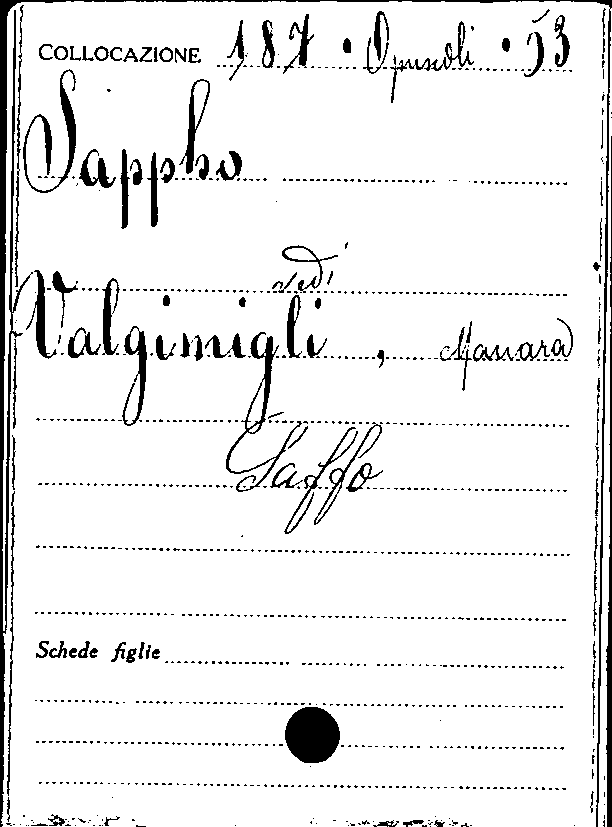 COLLOCAZIONE 187 • Opuscoli • 53
Sappho
vedi
Valgimigli, Manara
Saffo
Schede figlie